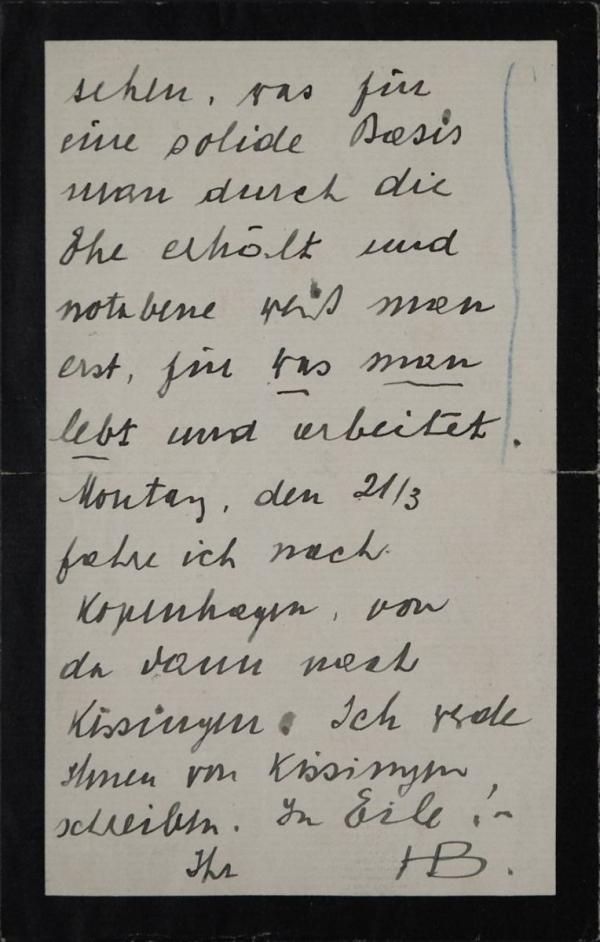 sehen, was für
eine solide Basis
man durch die
Ehe erhält und
notabene weiß man
erst, für was man
lebt und arbeitet.
Montag, den 21/3
fahre ich nach
Kopenhagen, von
da dann nach
Kissingen. Ich werde
Ihnen von Kissingen
schreiben. In Eile!-
Ihr HB.